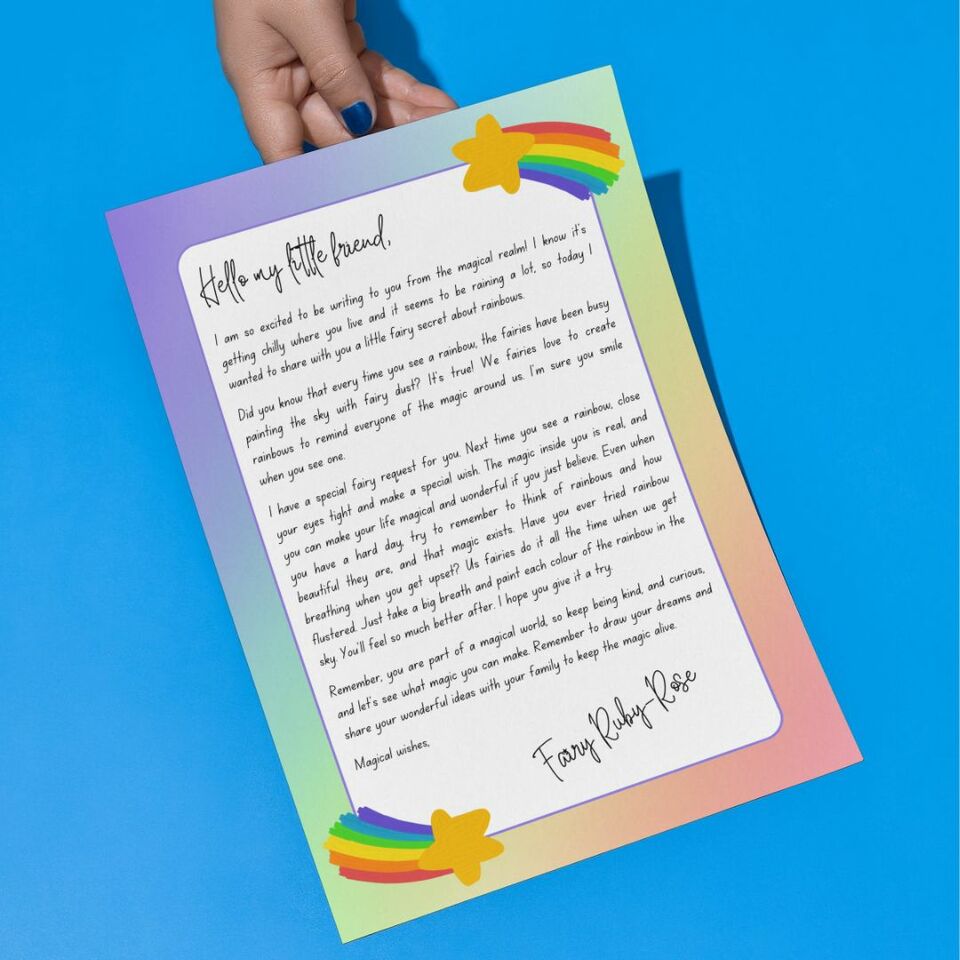 Hello my little friend,
I am so excited to be writing to you from the magical realm! I know it's
getting chilly where you live and it seems to be raining a lot, so today I
wanted to share with you a little fairy secret about rainbows.
Did you know that every time you see a rainbow, the fairies have been busy
painting the sky with fairy dust? It's true! We fairies love to create
rainbows to remind everyone of the magic around us. I'm sure you smile
when you see one.
I have a special fairy request for you. Next time you see a rainbow, close
your eyes tight and make a special wish. The magic inside you is real, and
you can make your life magical and wonderful if you just believe. Even when
you have a hard day, try to remember to think of rainbows and how
beautiful they are, and that magic exists. Have you ever tried rainbow
breathing when you get upset? Us fairies do it all the time when we get
flustered. Just take a big breath and paint each colour of the rainbow in the
sky. You'll feel so much better after. I hope you give it a try.
Remember, you are part of a magical world, so keep being kind, and curious,
and let's see what magic you can make. Remember to draw your dreams and
share your wonderful ideas with your family to keep the magic alive.
Magical wishes,
Fairy Ruby-Rose